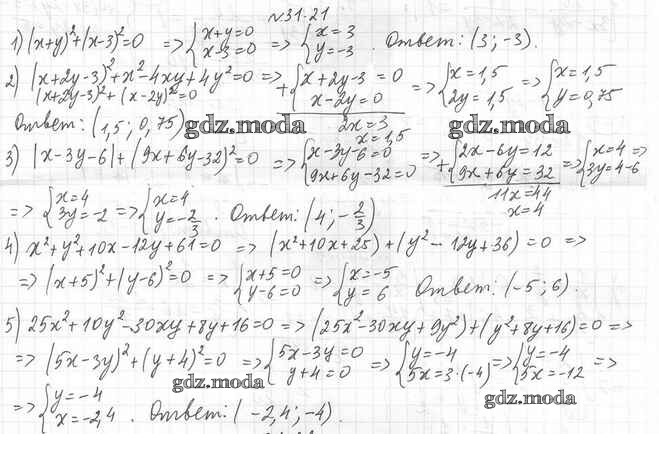 №31.21
1) (x+y)²+(x-3)²=0 => {x+y=0 x-3=0 => {x=3 y=-3 . Ответ: (3; -3).
2) (x+2y-3)²+x²-4xy+4y²=0 => +{x+2y-3=0 x-2y=0 => {x=1,5 2y=1,5 => {x=1,5 y=0,75
(x+2y-3)²+(x-2y)²=0
2x=3
Ответ: (1,5; 0,75) gdz.moda x=1,5 gdz.moda
3) |x-3y-6|+(9x+6y-32)²=0 => {x-3y-6=0 9x+6y-32=0 => +{2x-6y=12 9x+6y=32 => {x=4 3y=4-6 =>
11x=44
x=4
=> {x=4 3y=-2 => {x=4 y=-2/3 . Ответ: (4; -2/3)
4) x²+y²+10x-12y+61=0 => (x²+10x+25)+(y²-12y+36)=0 =>
=> (x+5)²+(y-6)²=0 => {x+5=0 y-6=0 => {x=-5 y=6 Ответ: (-5; 6).
5) 25x²+10y²-30xy+8y+16=0 => (25x²-30xy+9y²)+(y²+8y+16)=0 =>
=> (5x-3y)²+(y+4)²=0 => {5x-3y=0 y+4=0 => {y=-4 5x=3·(-4) => {y=-4 5x=-12 =>
gdz.moda gdz.moda
=> {y=-4 x=-2,4 . Ответ: (-2,4; -4).